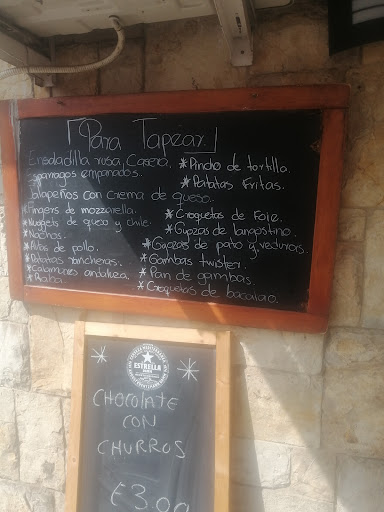 Para Tapear.
Ensaladilla rusa, Casera.
Espárragos empanados.
Jalapeños con crema de queso.
* Fingers de mozzarella.
* Nuggets de queso y chile.
* Nachos.
* Alitas de pollo.
* Patatas rancheras.
* Calamares andaluza.
* Raba.
* Pincho de tortilla.
* Patatas Fritas.
* Croquetas de Foie.
* Gyozas de langostino.
* Gyozas de pato y verduras.
* Gambas twister.
* Pan de gambas.
* Croquetas de bacalao.
ESTRELLA
CHOCOLATE
CON
CHURROS
€3.00